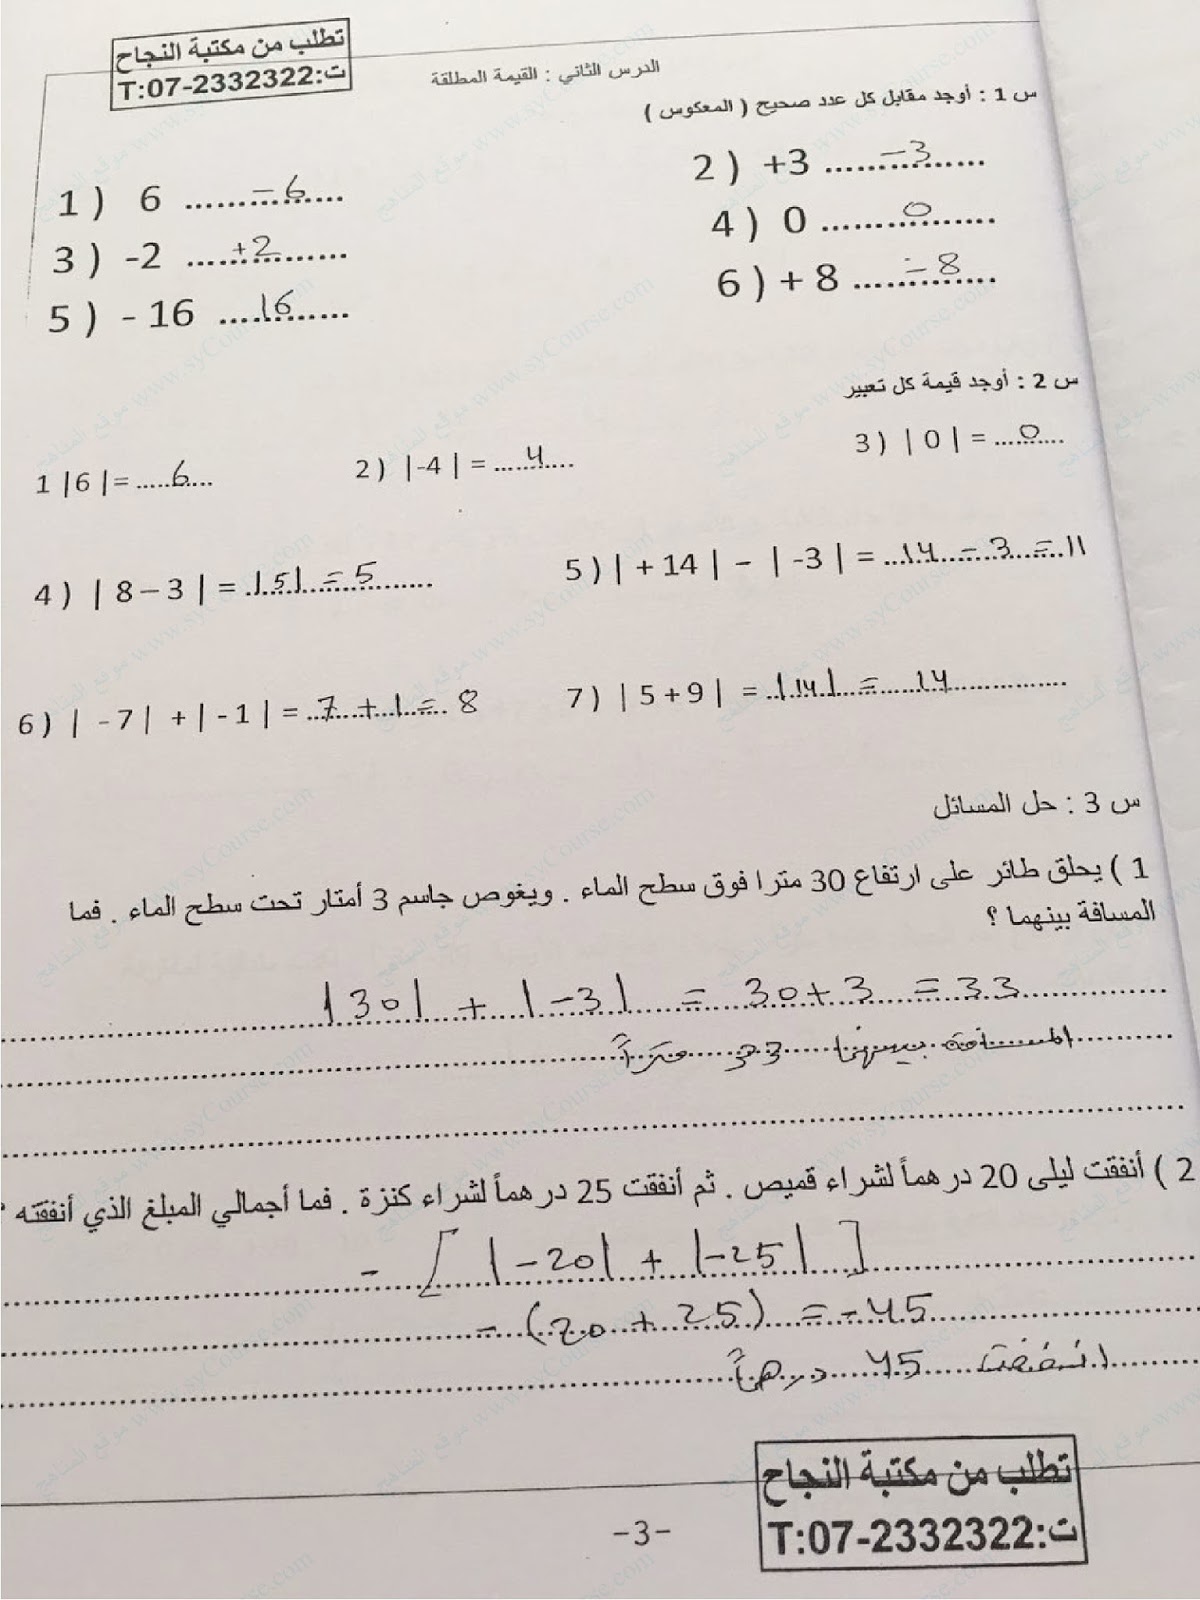 تطلب من مكتبة النجاح
ت:T:07-2332322
الدرس الثاني : القيمة المطلقة
س 1 : أوجد مقابل كل عدد صحيح ( المعكوس )
1 ) 6 .......-6.......
2 ) +3 .......-3.......
3 ) -2 .......+2.......
4 ) 0 .......0.......
5 ) - 16 .......16.......
6 ) + 8 .......-8.......
س 2 : أوجد قيمة كل تعبير
1 |6 |= .....6....
2 ) |-4 | = ......4....
3 ) | 0 | = .....0....
4 ) | 8 – 3 | = |5| = 5
5 ) | + 14 | – | -3 | = 14 - 3 = 11
6 ) | - 7 | + | - 1 | = 7 + 1 = 8
7 ) | 5 + 9 | = |14| = 14
س 3 : حل المسائل
1 ) يحلق طائر على ارتفاع 30 مترا فوق سطح الماء . ويغوص جاسم 3 أمتار تحت سطح الماء . فما
المسافة بينهما ؟
|30| + |-3| = 30 + 3 = 33
المسافة بينهما 33 متراً
2 ) أنفقت ليلى 20 درهماً لشراء قميص . ثم أنفقت 25 درهماً لشراء كنزة . فما أجمالي المبلغ الذي أنفقته ؟
- [ |-20| + |-25| ]
- (20 + 25) = -45
انفقت 45 درهماً
تطلب من مكتبة النجاح
ت:T:07-2332322
-3-
موقع المناهج www.syCourse.com